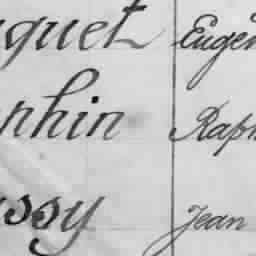 quet Eugèn
nhin Raph
ssy Jean